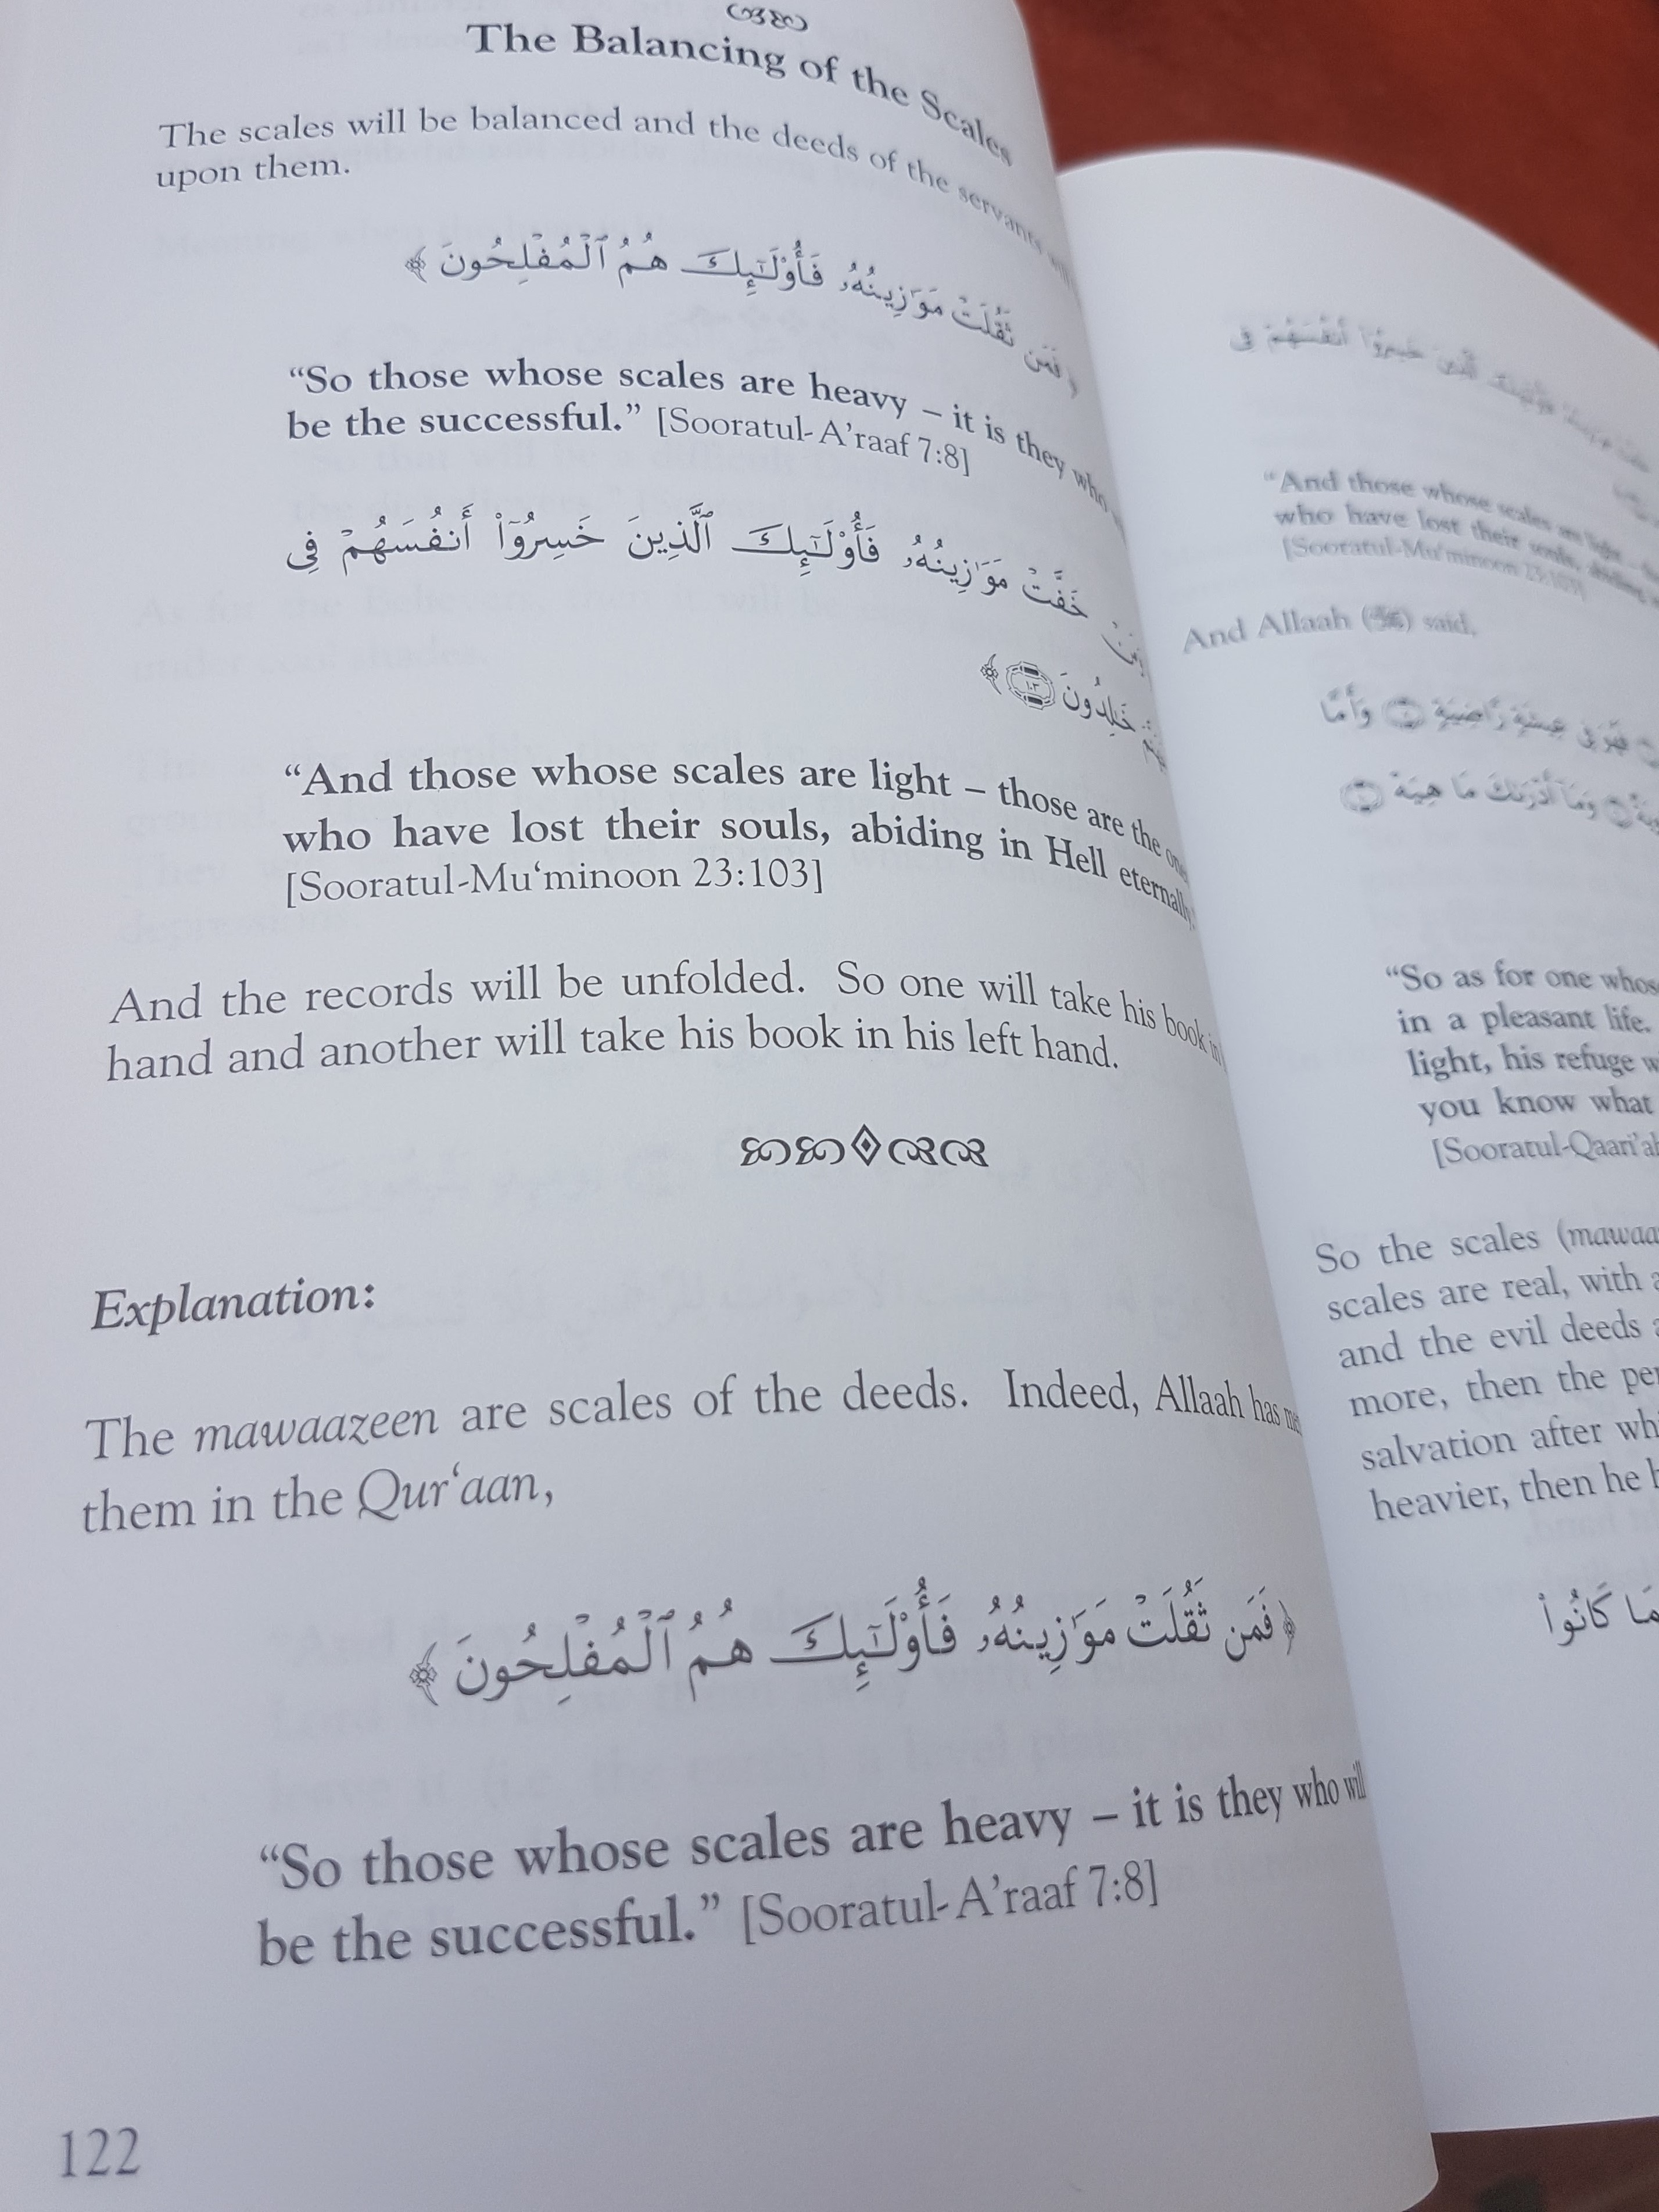 The Balancing of the Scales
The scales will be balanced and the deeds of the servants will
upon them.
﴿ فَمَن ثَقُلَتْ مَوَٰزِينُهُۥ فَأُو۟لَـٰٓئِكَ هُمُ ٱلْمُفْلِحُونَ ﴾
“So those whose scales are heavy – it is they who
be the successful.” [Sooratul-A’raaf 7:8]
خَفَّتْ مَوَٰزِينُهُۥ فَأُو۟لَـٰٓئِكَ ٱلَّذِينَ خَسِرُوٓا۟ أَنفُسَهُمْ فِى
خَـٰلِدُونَ ١٠٣ ﴾
“And those whose scales are light – those are the ones
who have lost their souls, abiding in Hell eternally.
[Sooratul-Mu‘minoon 23:103]
And the records will be unfolded. So one will take his book in
hand and another will take his book in his left hand.
Explanation:
The mawaazeen are scales of the deeds. Indeed, Allaah has
them in the Qur‘aan,
﴿ فَمَن ثَقُلَتْ مَوَٰزِينُهُۥ فَأُو۟لَـٰٓئِكَ هُمُ ٱلْمُفْلِحُونَ ﴾
“So those whose scales are heavy – it is they who will
be the successful.” [Sooratul-A’raaf 7:8]
122
ٱلَّذِينَ خَسِرُوٓا۟ أَنفُسَهُمْ فِى
“And those whose scales are light
who have lost their souls, abiding
[Sooratul-Mu‘minoon 23:103]
And Allaah (ﷻ) said,
فَهُوَ فِى عِيشَةٍ رَّاضِيَةٍ وَأَمَّا
وَمَآ أَدْرَىٰكَ مَا هِيَهْ
“So as for one whose
in a pleasant life.
light, his refuge
you know what
[Sooratul-Qaari’ah
So the scales
scales are real, with
and the evil deeds
more, then the
salvation after
heavier, then he
مَا كَانُوا۟